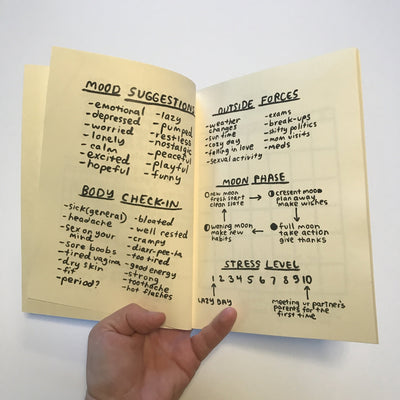 MOOD SUGGESTIONS
-emotional
-depressed
-worried
-lonely
-calm
-excited
-hopeful
-lazy
-pumped
-restless
-nostalgic
-peaceful
-playful
-funny
BODY CHECK-IN
-sick(general)
-headache
-sex on your
mind
-sore boobs
-tired vagina
-dry skin
-fit
-period?
-bloated
-well rested
-crampy
-diarr-pee-ha
-too tired
-good energy
-strong
-toothache
-hot flashes
OUTSIDE FORCES
-weather
changes
-sun time
-cozy day
-falling in love
-sexual activity
-exams
-break-ups
-shitty politics
-mom visits
-meds
MOON PHASE
new moon
fresh start
clean slate
cresent moon
plan away
make wishes
waning moon
make new
habits
full moon
take action
give thanks
STRESS LEVEL
1 2 3 4 5 6 7 8 9 10
LAZY DAY
meeting ur partner's
parents for the
first time